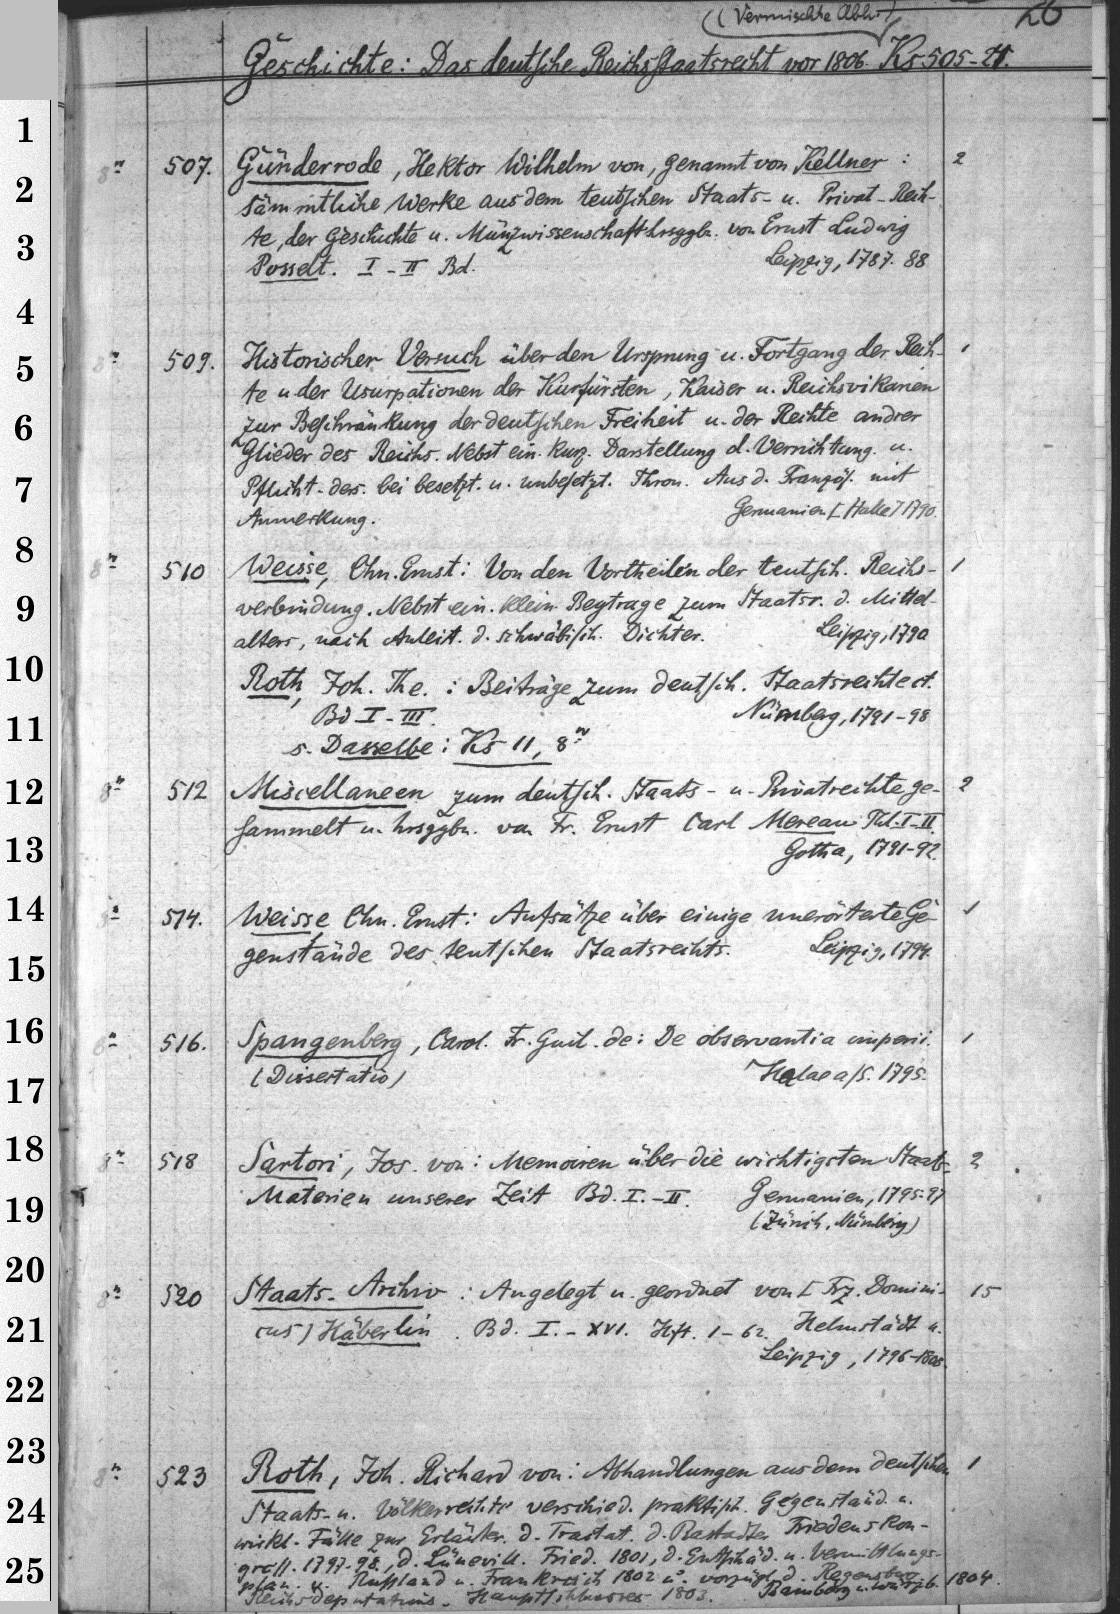 (Vermischte Abh.) 26
Geschichte: Das deutsche Reichsstaatsrecht vor 1806. Ks 505-
1
8° 507. Günderrode, Hektor Wilhelm von, genannt von Kellner : 2
2
sämmtliche Werke aus dem teutschen Staats- u. Privat-Rech-
3
te, der Geschichte u. Münzwissenschaft hrsggbn. von Ernst Ludwig
Posselt. I-II Bd. Leipzig, 1787. 88
4
5
8° 509. Historischer Versuch über den Ursprung u. Fortgang der Rech- 1
te u der Usurpationen der Kurfürsten, Kaiser u. Reichsvikarien
6
zur Beschränkung der deutschen Freiheit u. der Rechte andrer
Glieder des Reichs. Nebst ein. kurz. Darstellung d. Verrichtung. u.
7
Pflicht. ders. bei besetzt. u. unbesetzt. Thron. Aus d. Französ. mit
Anmerkung. Germanien [Halle] 1790.
8
8° 510 Weisse, Chn. Ernst: Von den Vortheilen der teutsch. Reichs- 1
9
verbindung. Nebst ein. klein. Beytrage zum Staatsr. d. Mittel-
alters, nach Anleit. d. schwäbisch. Dichter. Leipzig, 1790
10
Roth, Joh. The. : Beiträge zum deutsch. Staatsrechte ct.
11
Bd I-III. Nürnberg, 1791-98
s. Dasselbe: Ks 11, 8°
12
8° 512 Miscellaneen zum deutsch. Staats- u. Privatrechte ge- 2
sammelt u. hrsggbn. von Fr. Ernst Carl Mereau Thl. I-II
13
Gotha, 1791-92.
14
8° 514. Weisse, Chn. Ernst: Aufsätze über einige unerörterte Ge- 1
15
genstände des teutschen Staatsrechts. Leipzig, 1794.
16
8° 516. Spangenberg, Carol. Fr. Guil. de: De observantia imperii. 1
17
(Dissertatio) Halae a/S. 1795.
18
8° 518 Sartori, Jos. von: Memoiren über die wichtigsten Staats- 2
19
Materien unserer Zeit Bd. I.-II. Germanien, 1795-97
(Zürich, Nürnberg)
20
8° 520 Staats-Archiv : Angelegt u. geordnet von [Frz. Domini- 15
21
cus] Häberlin. Bd. I.-XVI. Hft. 1-62. Helmstädt u.
Leipzig, 1796-1808
22
23
8° 523 Roth, Joh. Richard von: Abhandlungen aus dem deutschen 1
24
Staats- u. Völkerrechte verschied. praktisch. Gegenständ. u.
wirkl. Fälle zur Erläuter. d. Tractat. d. Rastadter Friedenskon-
25
gress. 1797-98., d. Lünevill. Fried. 1801, d. Entschäd. u. Vermittlungs-
plan. v. Russland u. Frankreich 1802 u. vorzügl. d. Regensburg.
Reichsdeputations-Hauptschlusses 1803. Bamberg u. Würzb. 1804.